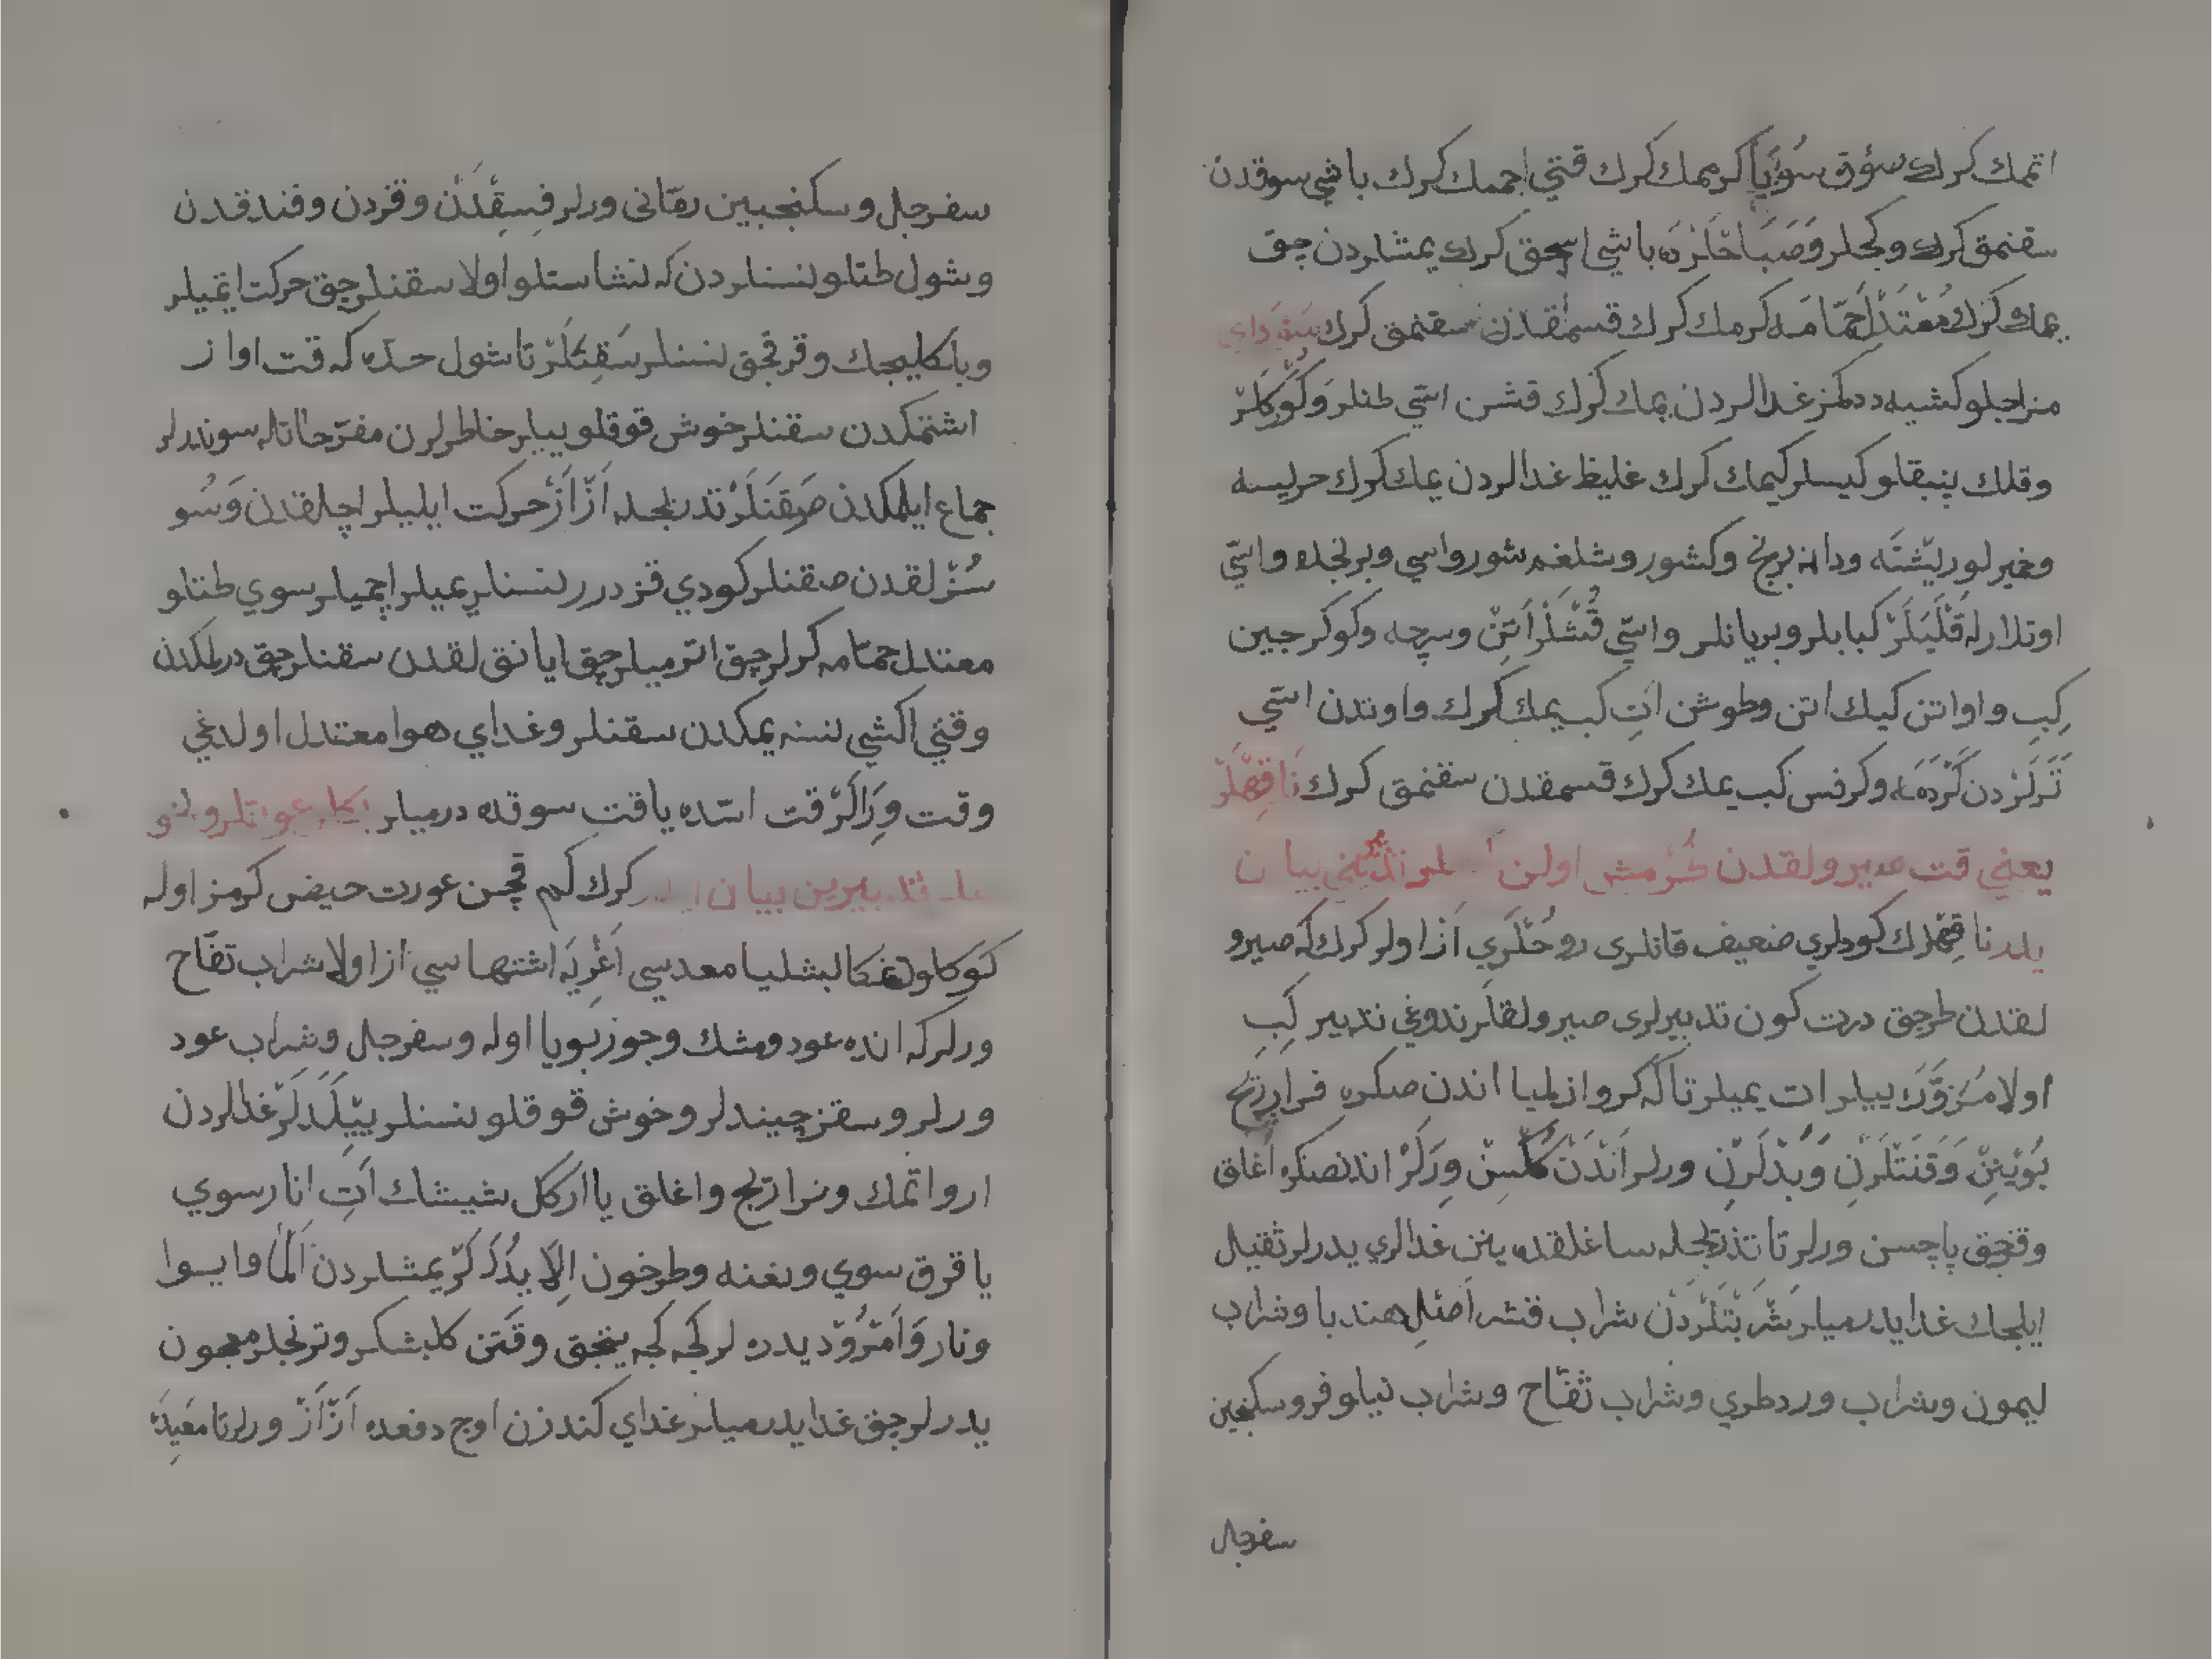 اتمك كرك سؤق سُويَا كرممك كرك قتي اجممك كرك باشي سوقدن
سقنمق كرك وكجلر وَصَبَاحْلَرْدَه باشي اسجق كرك يمشلردن چق
يماك كرك مُعْتَدِل حَمَّامه كرمك كرك قسمقدن سقنمق كرك سَوْدَاي
مزاجلو كشيه ددكمز غدالردن يمك كرك قشن اسّي طنلر وَكُورْكلَرْ
وقلك پنبقلو كيسلر كيمك كرك غليظ غدالردن يمك كرك حريسه
وخمير لورِشْتَه ودانه برنج وكشور وشلغم شورواسي وبرنجله واسّي
اوتلارله قَلْيَلَرْ كبابلر وبريانلر واسّي قُشْلَرْ اَتِنْ وسرچه وكوكرجين
كِبِ واواتن كيك اتن وطوشن اتِ كب يمك كرك واوتدن اسّي
تَرَلَرْدن كَرْدَمَه وكرفس كب يمك كرك قسمقدن سقنمق كرك نَاقِهْلَرْ
يعني قت صيرولقدن طُرْمش اولن لر تدبيرني بيان
يلدر ناقِهْلرك كودلري ضعيف قانلرى رُوحْلَري اَز اولر كرك كه صيرو
لقدن طرجق درت كون تدبيرلرى صيرولقلرندوغي تدبير كِبِ
اولا مُزَوَّرَه ييلر ات يميلر تا كه كرو ازلميا اندن صكره فراريج
بُوينِنْ وَقَنَتْلَرْنِ وَبُدْلَرْنِ ورلر اَنْدَنْ كُلّيسِنْ وِرَلَرْ اندنصنكره اُغلاق
وقزجق پاچسن ورلر تا تدريجله ساغلقده ينن غدالري يدرلر ثقيل
ايلجك غدا يدرميلر شَرْبَتْلَرْدَنْ شراب قتنه اَصْلِ هندبا وشراب
ليمون وشراب ورد طري وشراب تفّاح وشراب نيلوفر وسكنجبين
سفرجل
سفرجل وسكنجبين رمّانى ورلر فسِقْدَنْ وقزدن وفندقدن
وشول طتلو نسنلردن كه نشاستلو اولا سقنلر چق حركت اتميلر
وباكليجك وقرقجق نسنلر سَقِنَلَرْ تا شول حدّه كه قت اواز
اشتمكدن سقنلر خوش قوقلو ييلر خاطرلرن مفرّحاتله سوندرلر
جماع ايلمكدن صَقَنَلَرْ تدريجله اَزْ اَزْ حركت ايليلر اچلقدن وَسُو
سُزْلقدن صقنلر كودي قزدرر نسنلر يميلر اچميلر سوي طتلو
معتدل حمّامه كرلر چق اترميلر چق ايانق لقدن سقنلر چق درلمكدن
وقتي اكشي نسنه يمكدن سقنلر وغداي هوا معتدل اولدغي
وقت وِرَالَرْ قت اسّده يا قت سوقده درميلر يكلو عورتلر ولغو
تدبيرين بيان كرك كم قچن عورت حيض كرمز اوله
كوكلو دغكا لبشليا معدسي اَغْرِيَه اشتهاسي از اولا شراب تفّاح
ورلر كه انده عود ومشك وجوز بويا اوله وسفرجل وشراب عود
ورلر وسقز چيندلر وخوش قوقلو نسنلر ييَلَدلَرْ غدالردن
اروا تمك ونرا رتج واغلاق يا اركل شيشاك اَتِ انار سوي
يا قرق سوي ونعنه وطرخون اِلَا يدُرَكَرْ يمشلردن اَلْمَا وايوا
ونار وَاَمْرُودْ يدره لر كجه كجه يخجق وقتن كلبشكر وترنجلر معجون
يدرلر چق غدا يدرميلر غداي كندزن اوچ دفعده اَزْ اَزْ ورلر تا معيدَه